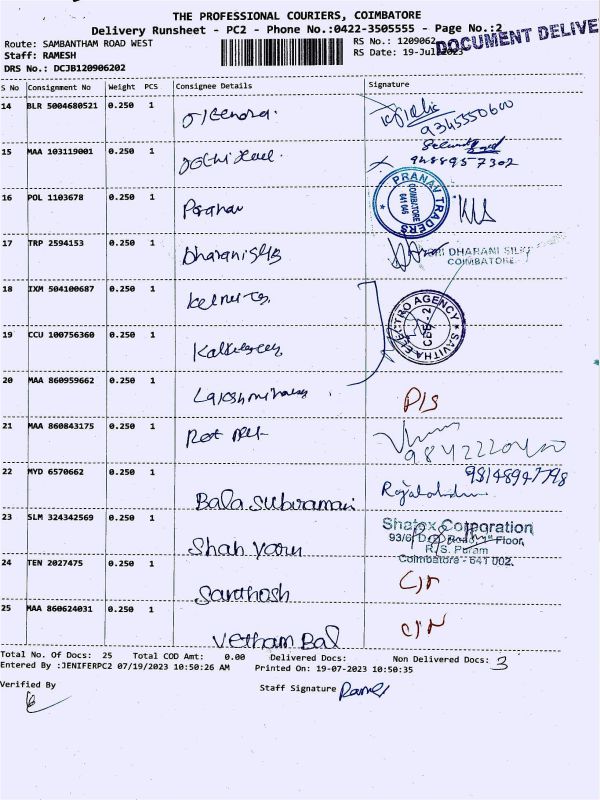 THE PROFESSIONAL COURIERS, COIMBATORE
Delivery Runsheet - PC2 - Phone No.:0422-3505555 - Page No.:2
Route: SAMBANTHAM ROAD WEST RS No.: 1209062 DOCUMENT DELIVE
Staff: RAMESH RS Date: 19-Jul-2023
DRS No.: DCJB120906202
S No Consignment No Weight PCS Consignee Details Signature
14 BLR 5004680521 0.250 1 9345550600
15 MAA 103119001 0.250 1 9488957302
16 POL 1103678 0.250 1 PRANAV TRADERS COIMBATORE 641 046
17 TRP 2594153 0.250 1 Dharani silks SHRI DHARANI SILKS
COIMBATORE
18 IXM 504100687 0.250 1 SAVITHA ELECTRO AGENCY CBE-2
19 CCU 100756360 0.250 1
20 MAA 860959662 0.250 1 P/S
21 MAA 860843175 0.250 1
22 MYD 6570662 0.250 1 Bala Subiramani
23 SLM 324342569 0.250 1 Shah Varun Shatex Corporation
93/6, D.B. Road, 1st Floor,
R.S. Puram
Coimbatore - 641 002.
24 TEN 2027475 0.250 1 Santhosh
25 MAA 860624031 0.250 1 Vetham Bal
Total No. Of Docs: 25 Total COD Amt: 0.00 Delivered Docs: Non Delivered Docs: 3
Entered By :JENIFERPC2 07/19/2023 10:50:26 AM Printed On: 19-07-2023 10:50:35
Verified By Staff Signature Ramesh